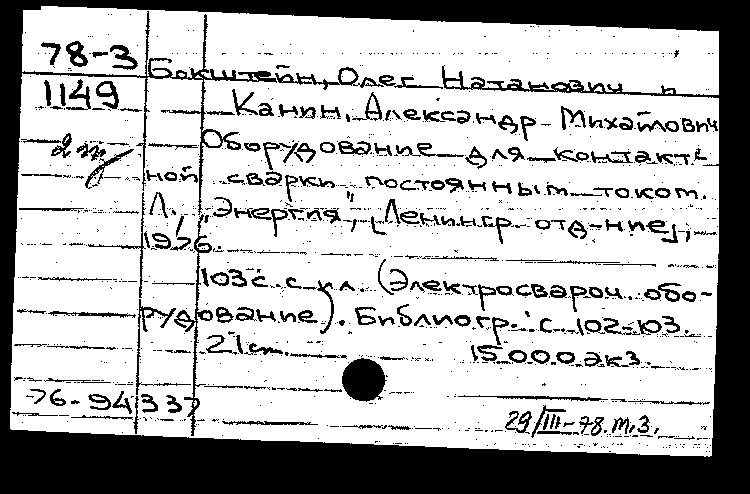 78-3
Бокштейн, Олег Натанович и
1149
Канин, Александр Михайлович
Оборудование для контакт-
ной сварки постоянным током.
Л., "Энергия", [Ленингр. отд-ние],
1976.
103 с. с ил. (Электросвароч. обо-
рудование). Библиогр.: с. 102-103.
21 см. 15000 экз.
76-94337
29/III-78. М.З.